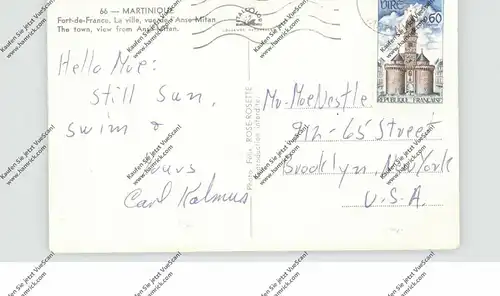 66 — MARTINIQUE
Fort-de-France. La ville, vue de l'Anse Mitan
The town, view from Anse Mitan.
Hello Moe:
Still Sun,
Swim &
yours
Carl Kalmus
Photo Félix ROSE-ROSETTE
Reproduction interdite
VIRE
0,60
REPUBLIQUE FRANÇAISE
Mr. Moe Nestle
912-65 Street
Brooklyn, New York
U.S.A.
Kaufen Sie jetzt VueScan!
www.hamrick.com